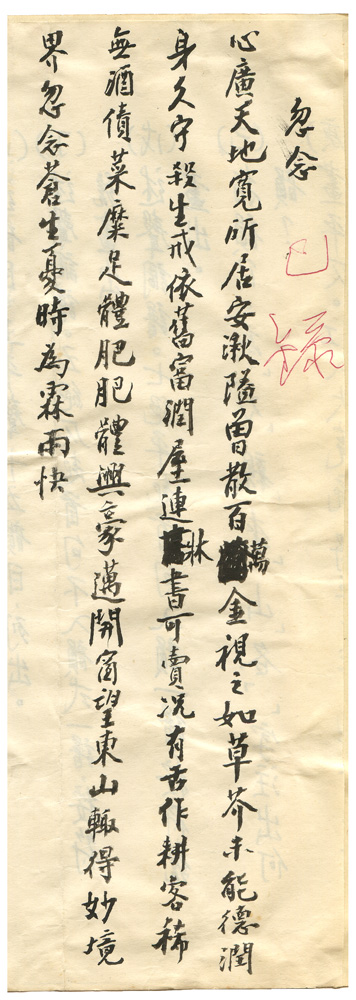 忽念
已錄
心廣天地寬所居安湫隘曾散百萬金視之如草芥未能德潤
身久守殺生戒依舊富潤屋連牀書可賣况有舌作耕客稀
無酒債菜糜足體肥肥體興豪邁開窗望東山輒得妙境
界忽念蒼生憂時為霖雨快